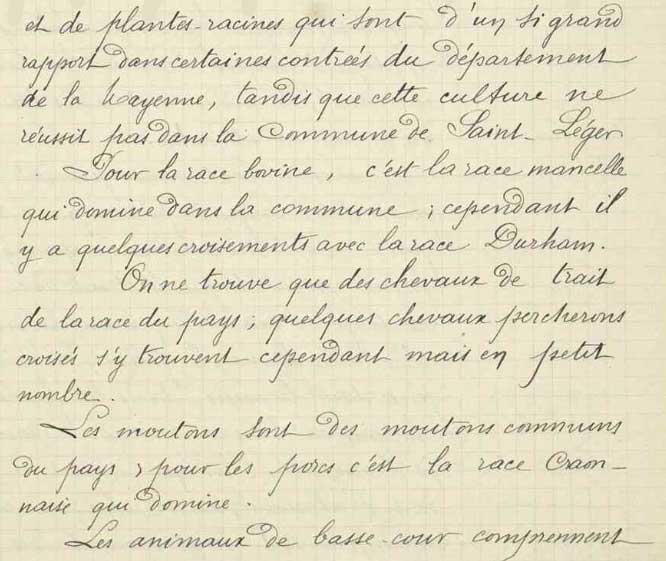 et de plantes-racines qui sont d'un si grand
rapport dans certaines contrées du département
de la Mayenne, tandis que cette culture ne
réussit pas dans la Commune de Saint-Léger
Pour la race bovine, c'est la race mancelle
qui domine dans la commune ; cependant il
y a quelques croisements avec la race Durham.
On ne trouve que des chevaux de trait
de la race du pays ; quelques chevaux percherons
croisés s'y trouvent cependant mais en petit
nombre.
Les moutons sont des moutons communs
du pays ; pour les porcs c'est la race Craon-
naise qui domine.
Les animaux de basse-cour comprennent